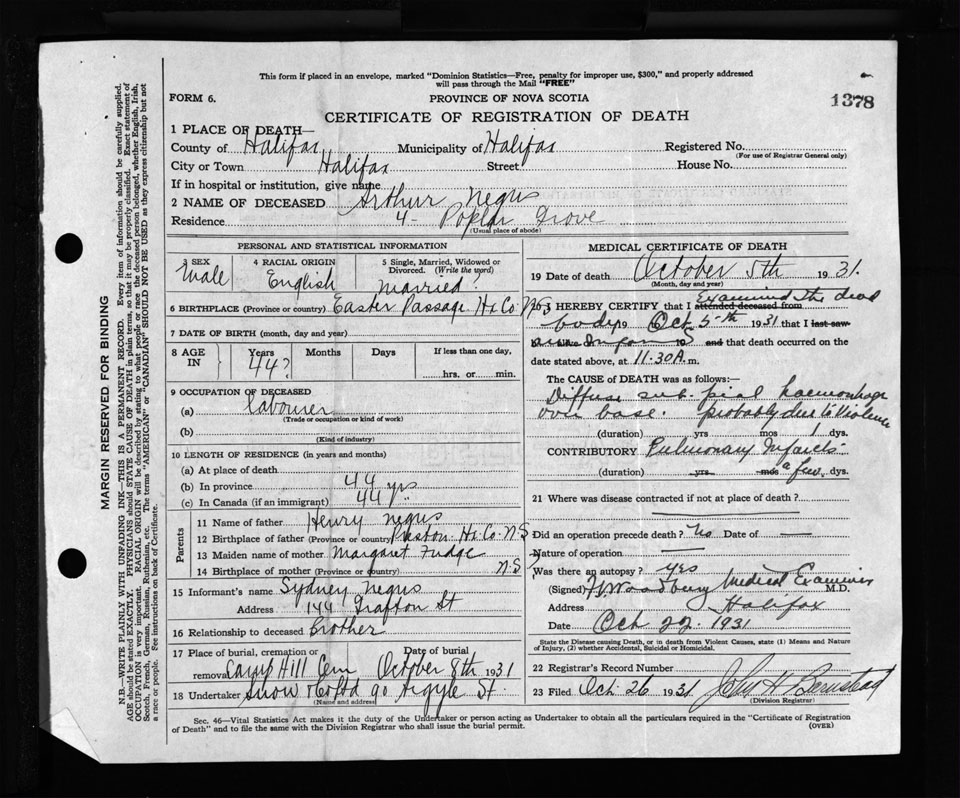 This form if placed in an envelope, marked "Dominion Statistics—Free, penalty for improper use, $300," and properly addressed
will pass through the Mail "FREE"
FORM 6.
PROVINCE OF NOVA SCOTIA
1378
CERTIFICATE OF REGISTRATION OF DEATH
1 PLACE OF DEATH—
County of Halifax Municipality of Halifax Registered No.
(For use of Registrar General only)
City or Town Halifax Street House No.
If in hospital or institution, give name
2 NAME OF DECEASED Arthur Negus
Residence 4- Poplar Grove
(Usual place of abode)
PERSONAL AND STATISTICAL INFORMATION
3 SEX 4 RACIAL ORIGIN 5 Single, Married, Widowed or
Divorced. (Write the word)
Male English Married?
6 BIRTHPLACE (Province or country) Easter Passage Hx Co N.S
7 DATE OF BIRTH (month, day and year)
8 AGE IN Years Months Days If less than one day,
44? hrs. or min.
9 OCCUPATION OF DECEASED
(a) labourer
(Trade or occupation or kind of work)
(b)
(Kind of industry)
10 LENGTH OF RESIDENCE (in years and months)
(a) At place of death
(b) In province 44 yrs
(c) In Canada (if an immigrant) 44 yrs
Parents
11 Name of father Henry Negus
12 Birthplace of father (Province or country) Preston Hx Co. N.S
13 Maiden name of mother Margaret Fudge
14 Birthplace of mother (Province or country) N.S
15 Informant's name Sydney Negus
Address 144 Grafton St
16 Relationship to deceased Brother
17 Place of burial, cremation or removal Date of burial
Camp Hill Cem October 8th 1931
18 Undertaker Snow & Co Ltd 90 Argyle St.
(Name and address)
MEDICAL CERTIFICATE OF DEATH
19 Date of death October 5th 1931.
(Month, day and year)
I HEREBY CERTIFY that I attended deceased from Examined the dead
body 19 Oct 5th 1931 that I last saw
19 and that death occurred on the
date stated above, at 11.30 A. m.
The CAUSE of DEATH was as follows:—
Diffuse sub pial haemorrhage
over base. probably due to violence
(duration) yrs mos 1 dys.
CONTRIBUTORY Pulmonary Infarcts
(duration) yrs mos a few dys.
21 Where was disease contracted if not at place of death?
Did an operation precede death? No Date of —
Nature of operation
Was there an autopsy? yes
(Signed) Woodbury Medical Examiner M.D.
Address Halifax
Date Oct 22 1931
State the Disease causing Death, or in death from Violent Causes, state (1) Means and Nature
of Injury, (2) whether Accidental, Suicidal or Homicidal.
22 Registrar's Record Number
23 Filed Oct. 26 1931 John H Barnstead
(Division Registrar)
Sec. 46—Vital Statistics Act makes it the duty of the Undertaker or person acting as Undertaker to obtain all the particulars required in the "Certificate of Registration
of Death" and to file the same with the Division Registrar who shall issue the burial permit.
(OVER)
MARGIN RESERVED FOR BINDING
N.B.—WRITE PLAINLY WITH UNFADING INK—THIS IS A PERMANENT RECORD. Every item of information should be carefully supplied.
AGE should be stated EXACTLY. PHYSICIANS should STATE CAUSE OF DEATH in plain terms, so that it may be properly classified. Exact statement of
OCCUPATION is very important. RACIAL ORIGIN will be described by stating to what people or race the deceased person belonged, whether English, Irish,
Scotch, French, German, Russian, Ruthenian, etc. The terms "AMERICAN" or "CANADIAN" SHOULD NOT BE USED as they express citizenship but not
a race or people. See instructions on back of Certificate.